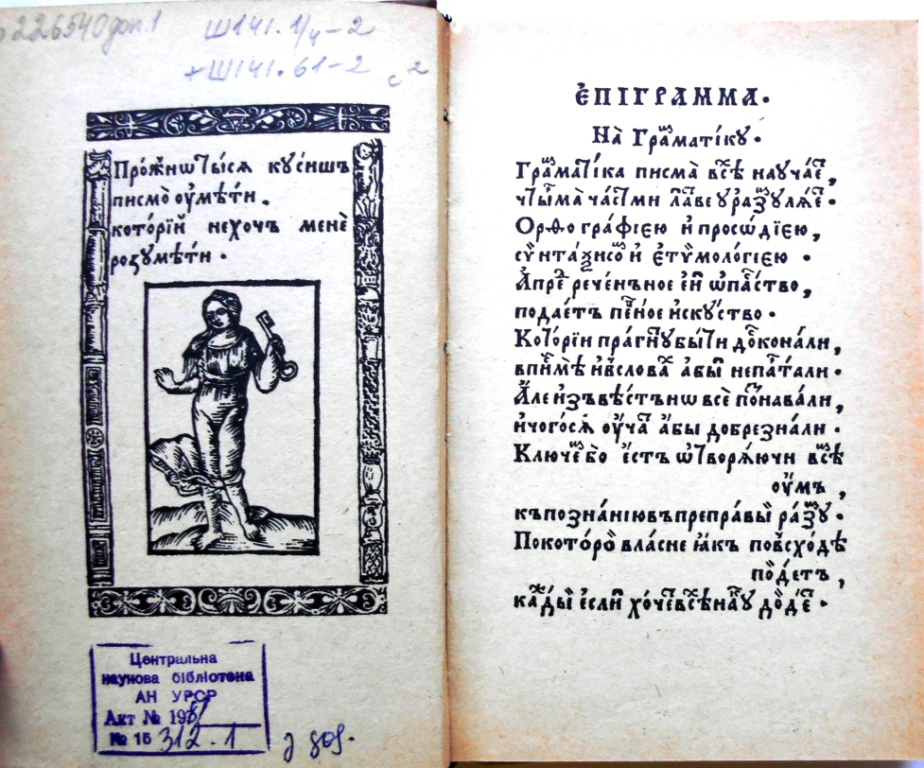 Б 226540 доп 1
Ш141.1/4-2
+Ш141.61-2
с2
Про́жнѡ ты́ся кꙋ́сишъ
писмо̀ ѹ҆мѣ́ти.
кото́рїй не хо́чъ менѐ
розꙋмѣ́ти.
Центральна
наукова бібліотека
АН УРСР
Акт № 198
№ 15 312.1
ЕПІГРАММА.
На̀ Грама́тїкꙋ.
Грама́тїка писма̀ всѣ́ наꙋча́е,
чты́ма ча́стми ла́ве ꙋразꙋмлѧ́е.
Орѳогра́фїею и҆ просѡ́дїею,
сѵнта́ѯисо и҆ етѷмоло́гїею.
подае́тъ пе́вное и҆ску́ство.
Кото́рїи пра́гнꙋ бы́ти до́конали,
впи́мѣ и҆ в слова а҆бы́ непа́тали.
Але и҆зъвѣ́стънѡ всѐ пона́вали,
и҆чогосѧ̀ ѹ҆ча а҆бы добрезна́ли.
Ключе́ бо е҆стъ ѿворѧ́ючи всѣ́
ѹ҆мъ,
къпозна́нїю въпрепра́вы ра́зꙋ.
Покото́ро вла́сне ꙗ҆́къ повсхо́дѣ
по́детъ,
ка́ды е҆сли хо́че всѣ́ наꙋ до́де.